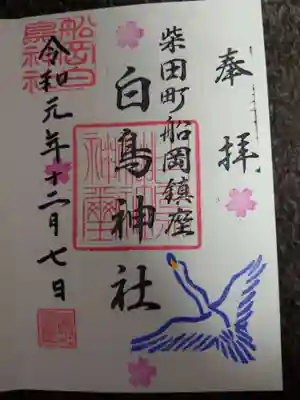 奉拝
柴田町船岡鎮座
白鳥神社
令和元年十二月七日
船岡白
鳥神社